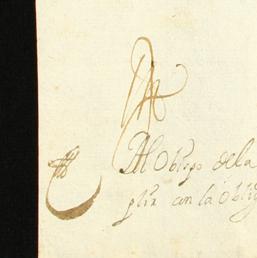 Al Obispo dela
plir con la oblig